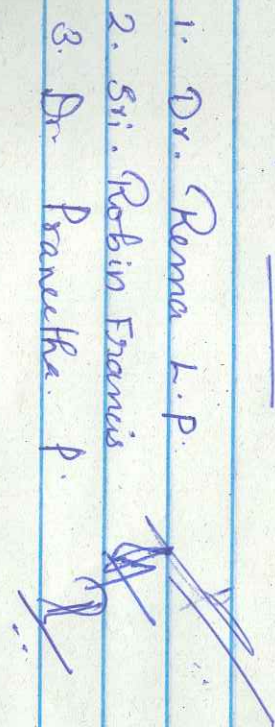 1. Dr. Rema L.P.
2. Sri. Robin Francis
3. Dr. Praneetha. P.